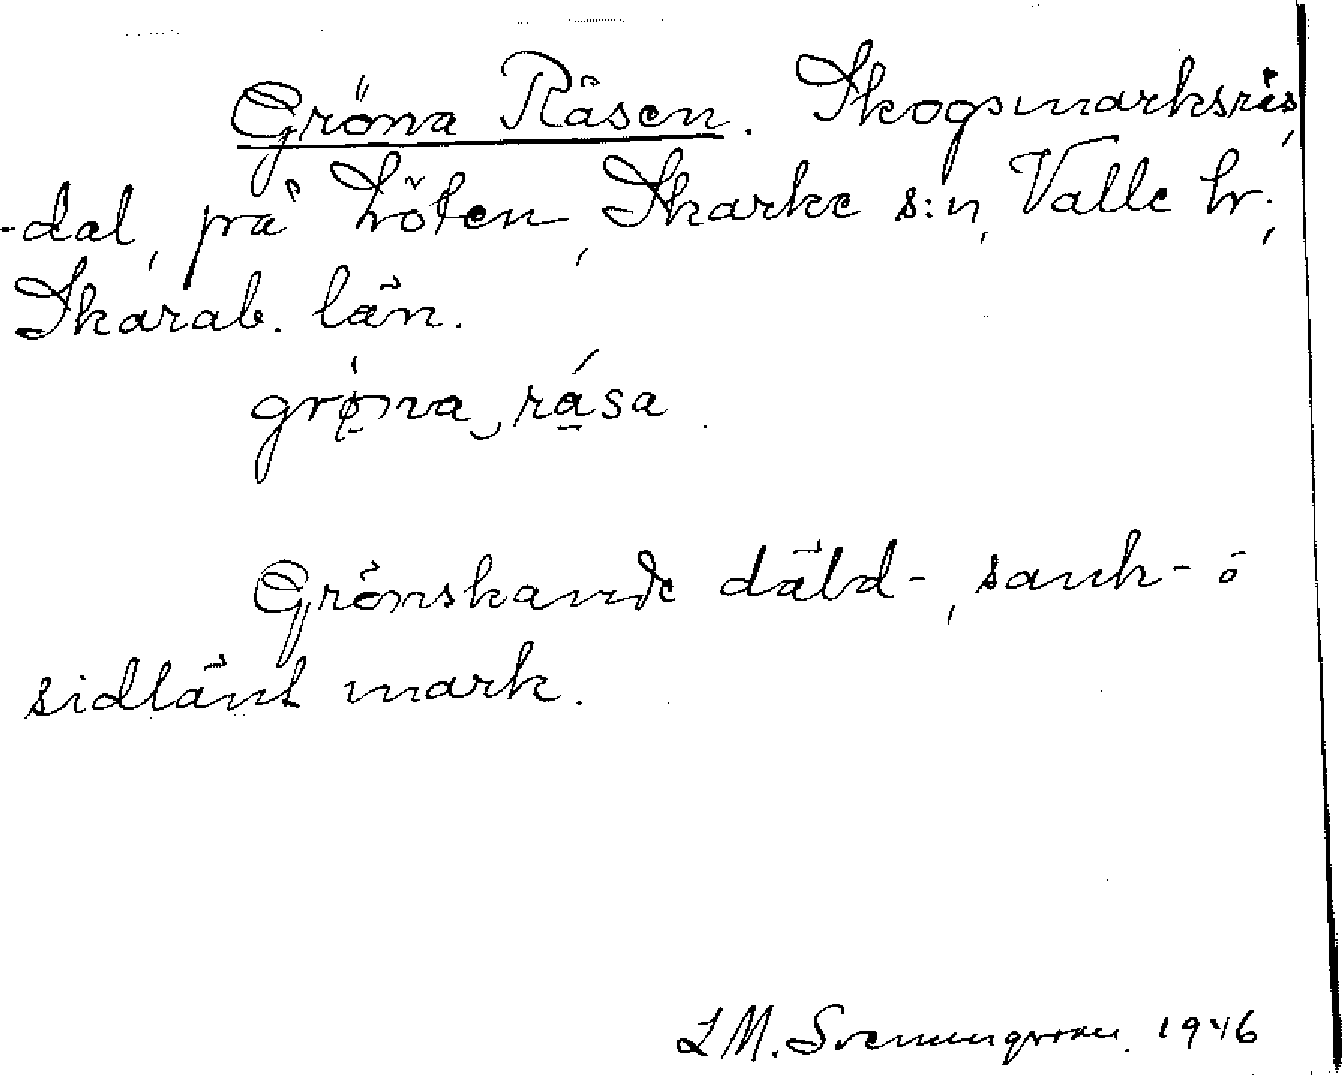 Gröna Räsen. Skogsmarksris,
-dal, på Löten, Skarke s:n, Valle hr.,
Skarab. län.
grø̣̀na‿rása.
Grönskande däld-, sank- o
sidlänt mark.
L M. Svenungsson. 1946